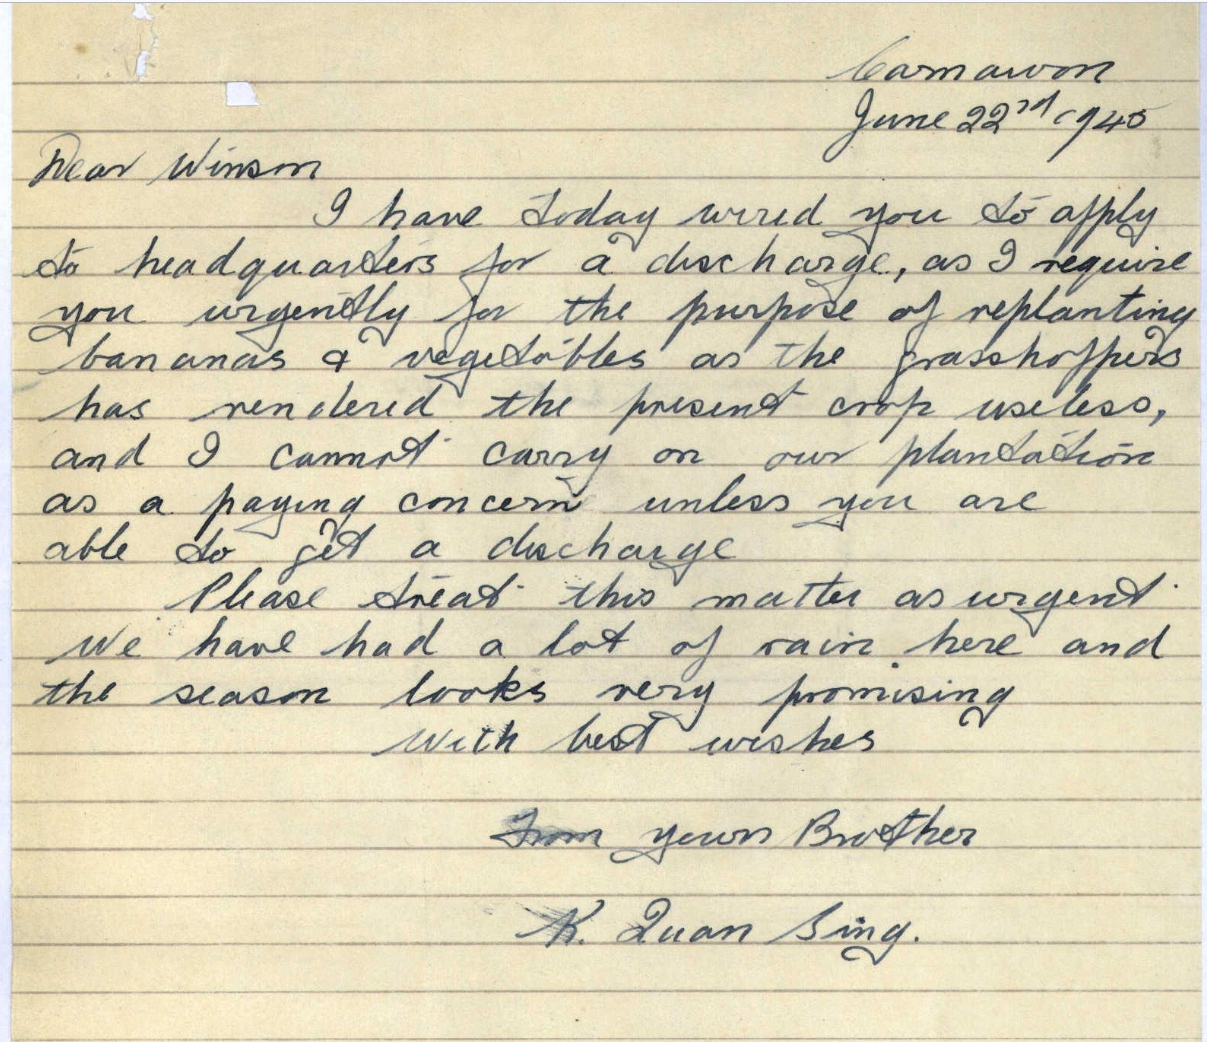 Carnarvon
June 22nd 1945
Dear Winson
I have today wired you to apply
to headquarters for a discharge, as I require
you urgently for the purpose of replanting
bananas & vegetables as the grasshoppers
has rendered the present crop useless,
and I cannot carry on our plantation
as a paying concern unless you are
able to get a discharge
Please treat this matter as urgent
We have had a lot of rain here and
the season looks very promising
With best wishes
From yours Brother
K. Quan Sing.